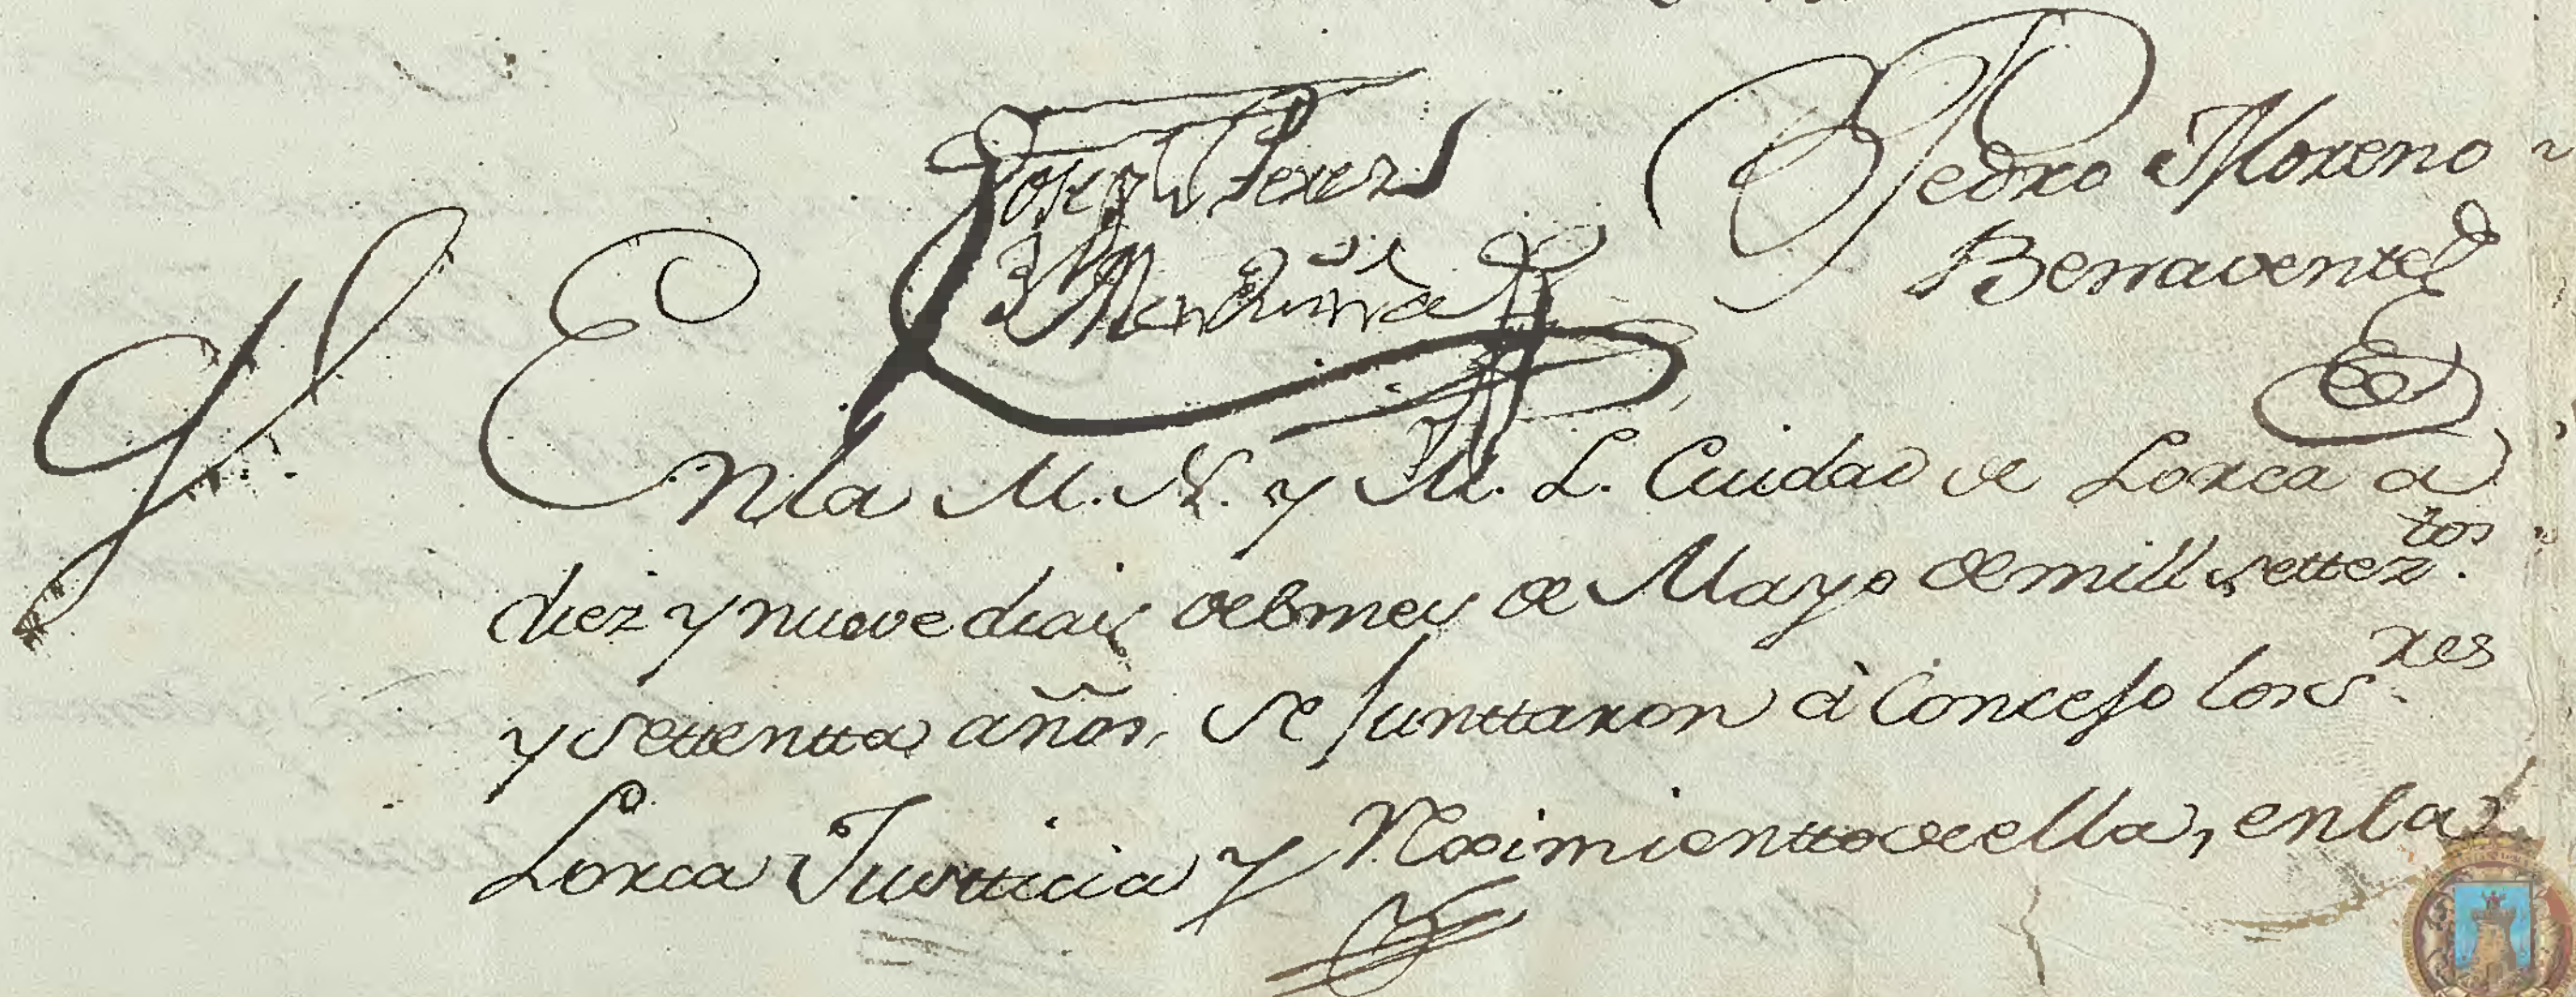 Josef Perez
de Menduiña
Pedro Moreno
Benavente
En la M. N. y M. L. Ciudad de Lorca a
diez y nueve dias del mes de Mayo de mill settez.tos
y settentta años, se Junttaron à Concejo los S.res
Lorca Justticia y Reximientto de ella, en la